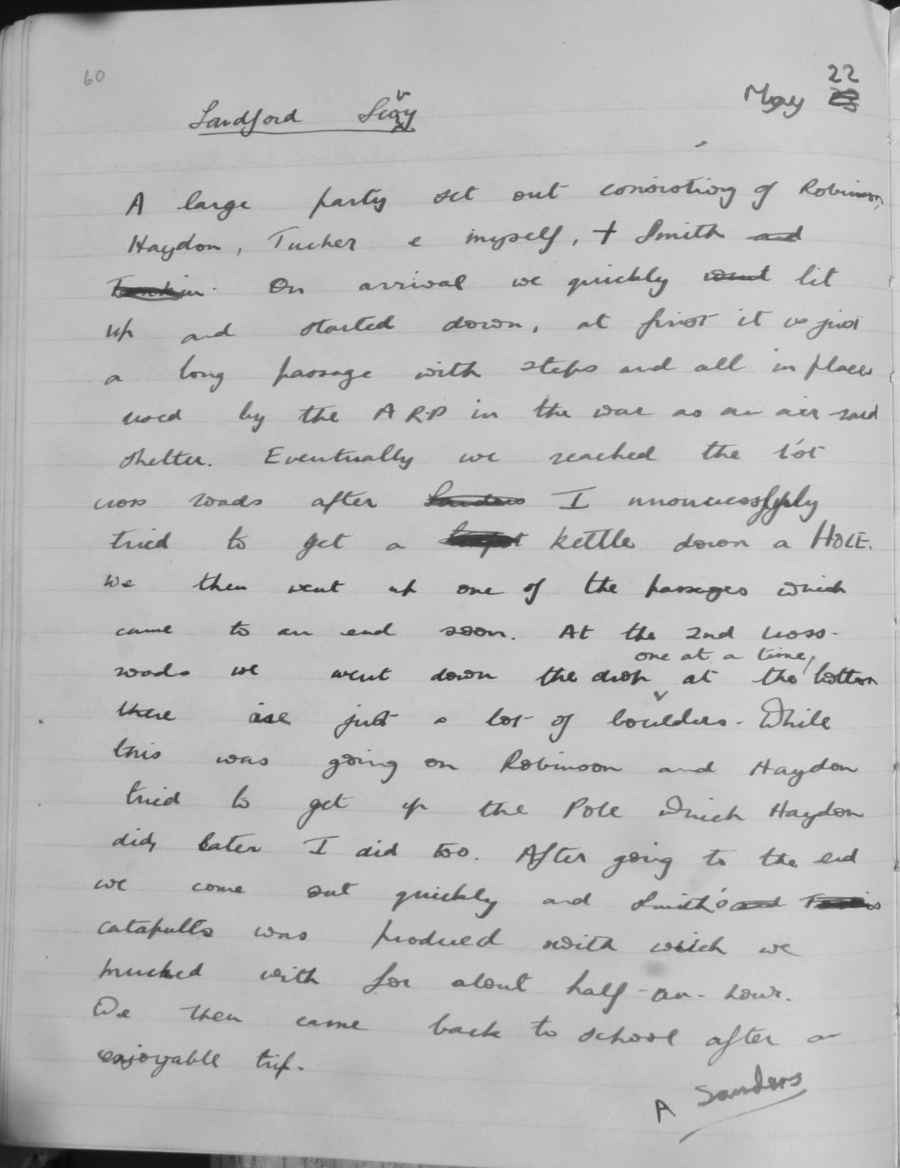 60
May 22
Sandford Levy
A large party set out consisting of Robinson,
Haydon, Tucker & myself, + Smith and
On arrival we quickly went lit
up and started down, at first it is just
a long passage with steps and all in places
used by the ARP in the war as an air-raid
shelter. Eventually we reached the 1st
cross roads after Sanders I unsuccessfully
tried to get a kettle down a HOLE.
We then went up one of the passages which
came to an end soon. At the 2nd cross-
one at a time,
roads we went down the drop at the bottom
there are just a lot of boulders. While
this was going on Robinson and Haydon
tried to get up the Pole which Haydon
did, later I did too. After going to the end
we come out quickly and Smith's and
catapults was produced with which we
mucked with for about half-an-hour.
We then came back to school after a
enjoyable trip.
A Sanders